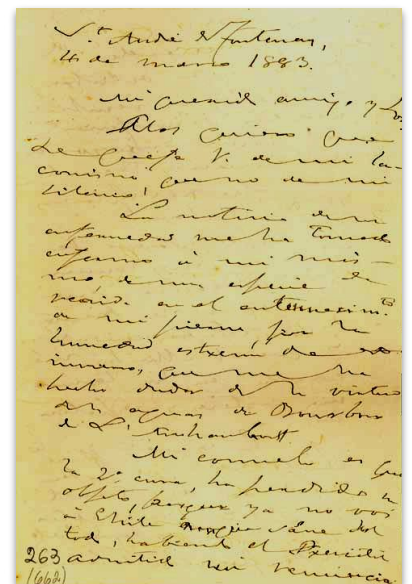 St. André de Fontenay,
4 de marzo 1883.
Mi querido amigo y
quiero que
se queje V. de mi la-
conismo, que no de mi
silencio!
La noticia de su
enfermedad me ha tomado
enfermo á mi mis-
mo, de una especie de
en el entumecimto
de mi pierna, por la
humedad estrema de este
invierno, que me ha
hecho dudar de la virtud
de las aguas de Bourbon
de L'Archambault.
Mi consuelo es que
la 2a cura, ha perdido su
objeto, porque ya no voi
á Chile aunque sane del
todo, habiendo el Presidte
admitido mi renuncia
263
(662)